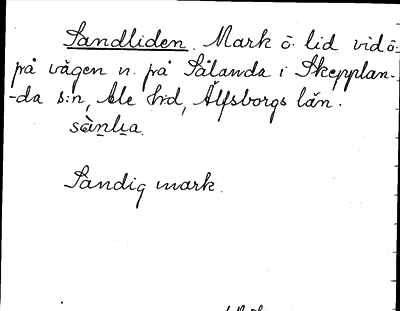 Sandliden. Mark ö. lid vid ö-
på vägen n. på Sålanda i Skepplan-
-da s:n, Ale h:d, Älfsborgs län.
Sandig mark.